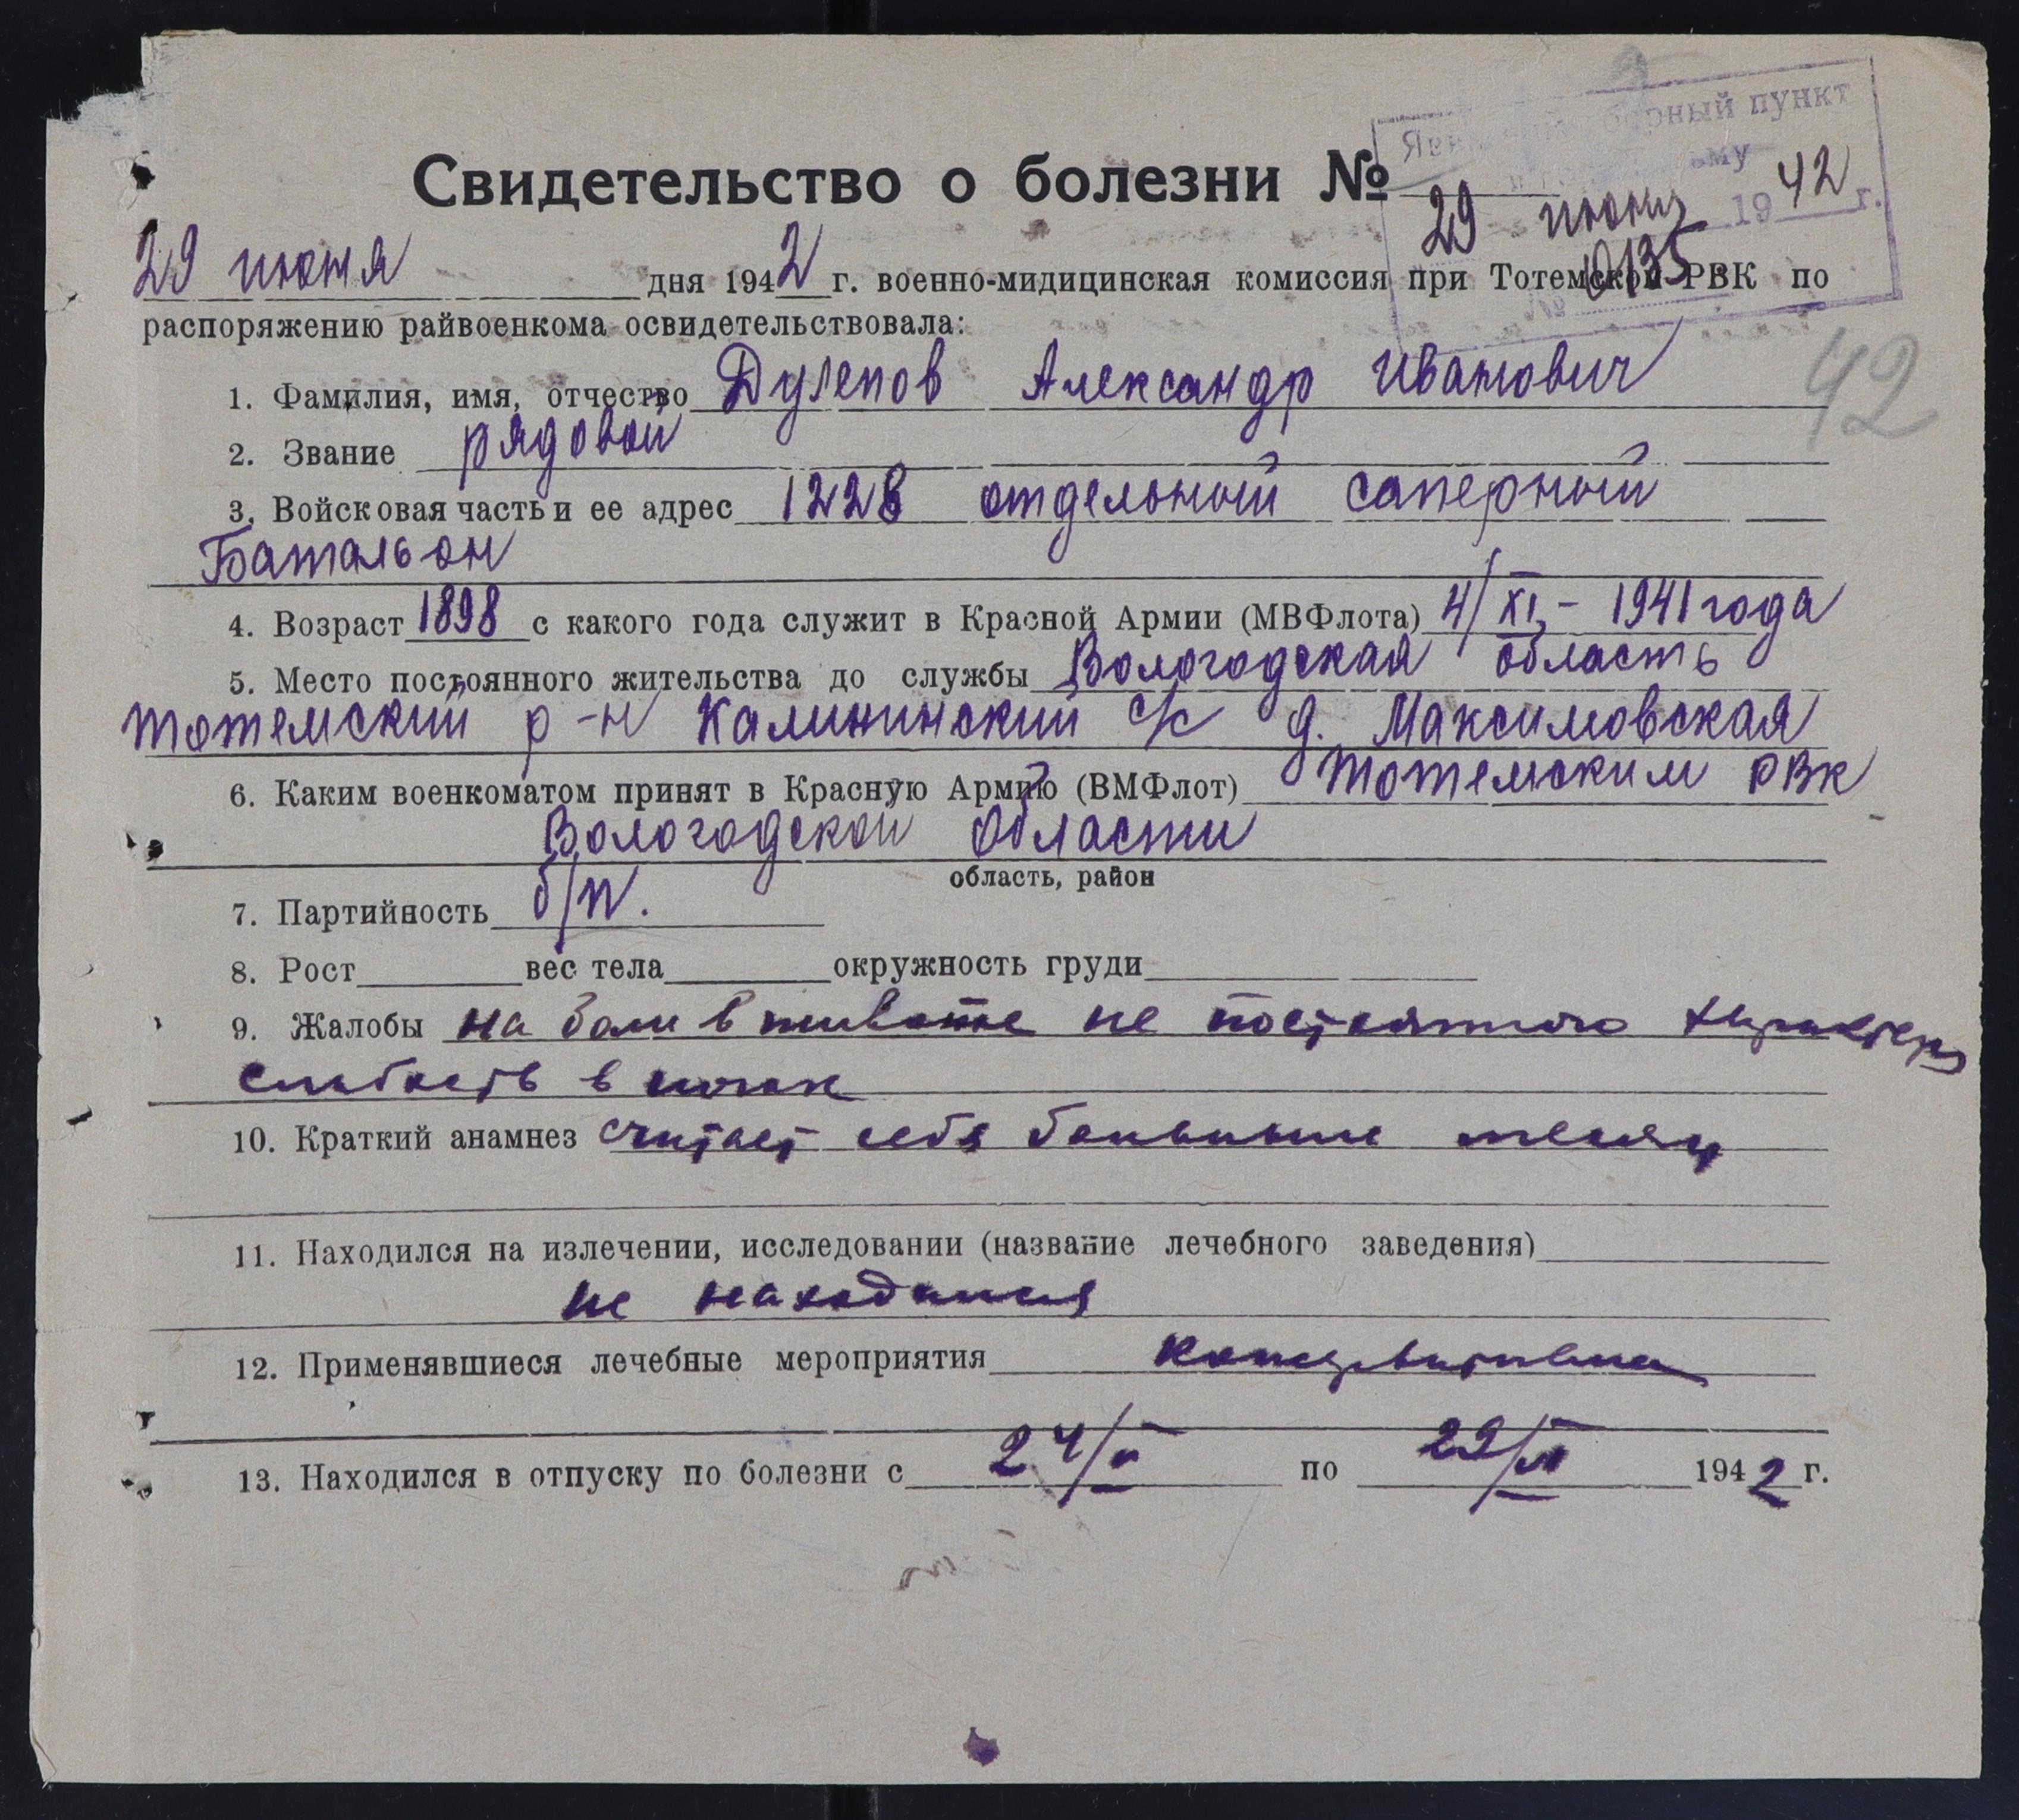 сборный пункт
Свидетельство о болезни №
29 июня 1942 г.
10135
29 июня дня 1942 г. военно-мидицинская комиссия при Тотемской РВК по
распоряжению райвоенкома освидетельствовала:
1. Фамилия, имя, отчество Дулепов Александр Иванович
42
2. Звание рядовой
3. Войсковая часть и ее адрес 1228 отдельный саперный
Батальон
4. Возраст 1898 с какого года служит в Красной Армии (МВФлота) 4/XI - 1941 года
5. Место постоянного жительства до службы Вологодская область
Тотемский р-н Калининский с/с д. Максимовская
6. Каким военкоматом принят в Красную Армию (ВМФлот) Тотемским РВК
Вологодской области
область, район
7. Партийность б/п.
8. Рост вес тела окружность груди
9. Жалобы на боли в животе не постоянного характера
слабость в ногах
10. Краткий анамнез считает себя больным месяц
11. Находился на излечении, исследовании (название лечебного заведения)
не находился
12. Применявшиеся лечебные мероприятия
13. Находился в отпуску по болезни с 24/V по 29/VI 1942 г.